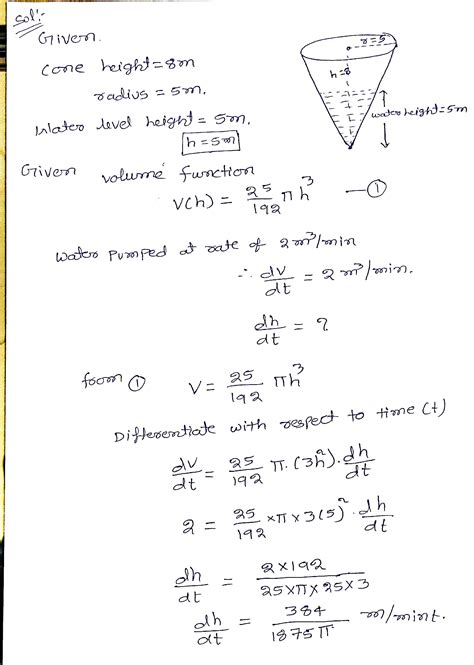 Sol:-
Given.
Cone height = 8m
radius = 5m.
Water level height = 5m.
h = 5m
r = 5
h = 8
water height = 5m
Given volume function
V(h) = 25/192 πh³ — ①
Water pumped at rate of 2m³/min
∴ dv/dt = 2 m³/min.
dh/dt = ?
from ① V = 25/192 πh³
Differentiate with respect to time (t)
dv/dt = 25/192 π.(3h²).dh/dt
2 = 25/192 ×π×3(5)².dh/dt
dh/dt = 2×192/25×π×25×3
dh/dt = 384/1875π m/mint.